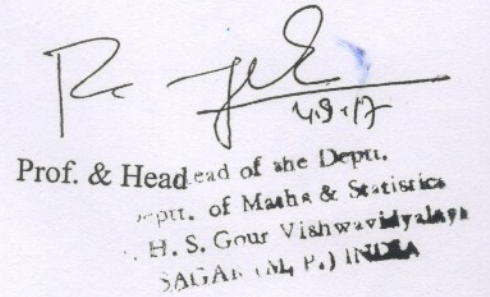 4.9.17
Prof. & Head ead of the Deptt.
eptt. of Maths & Statistics
H. S. Gour Vishwavidyalaya
SAGAR (M, P.) INDIA